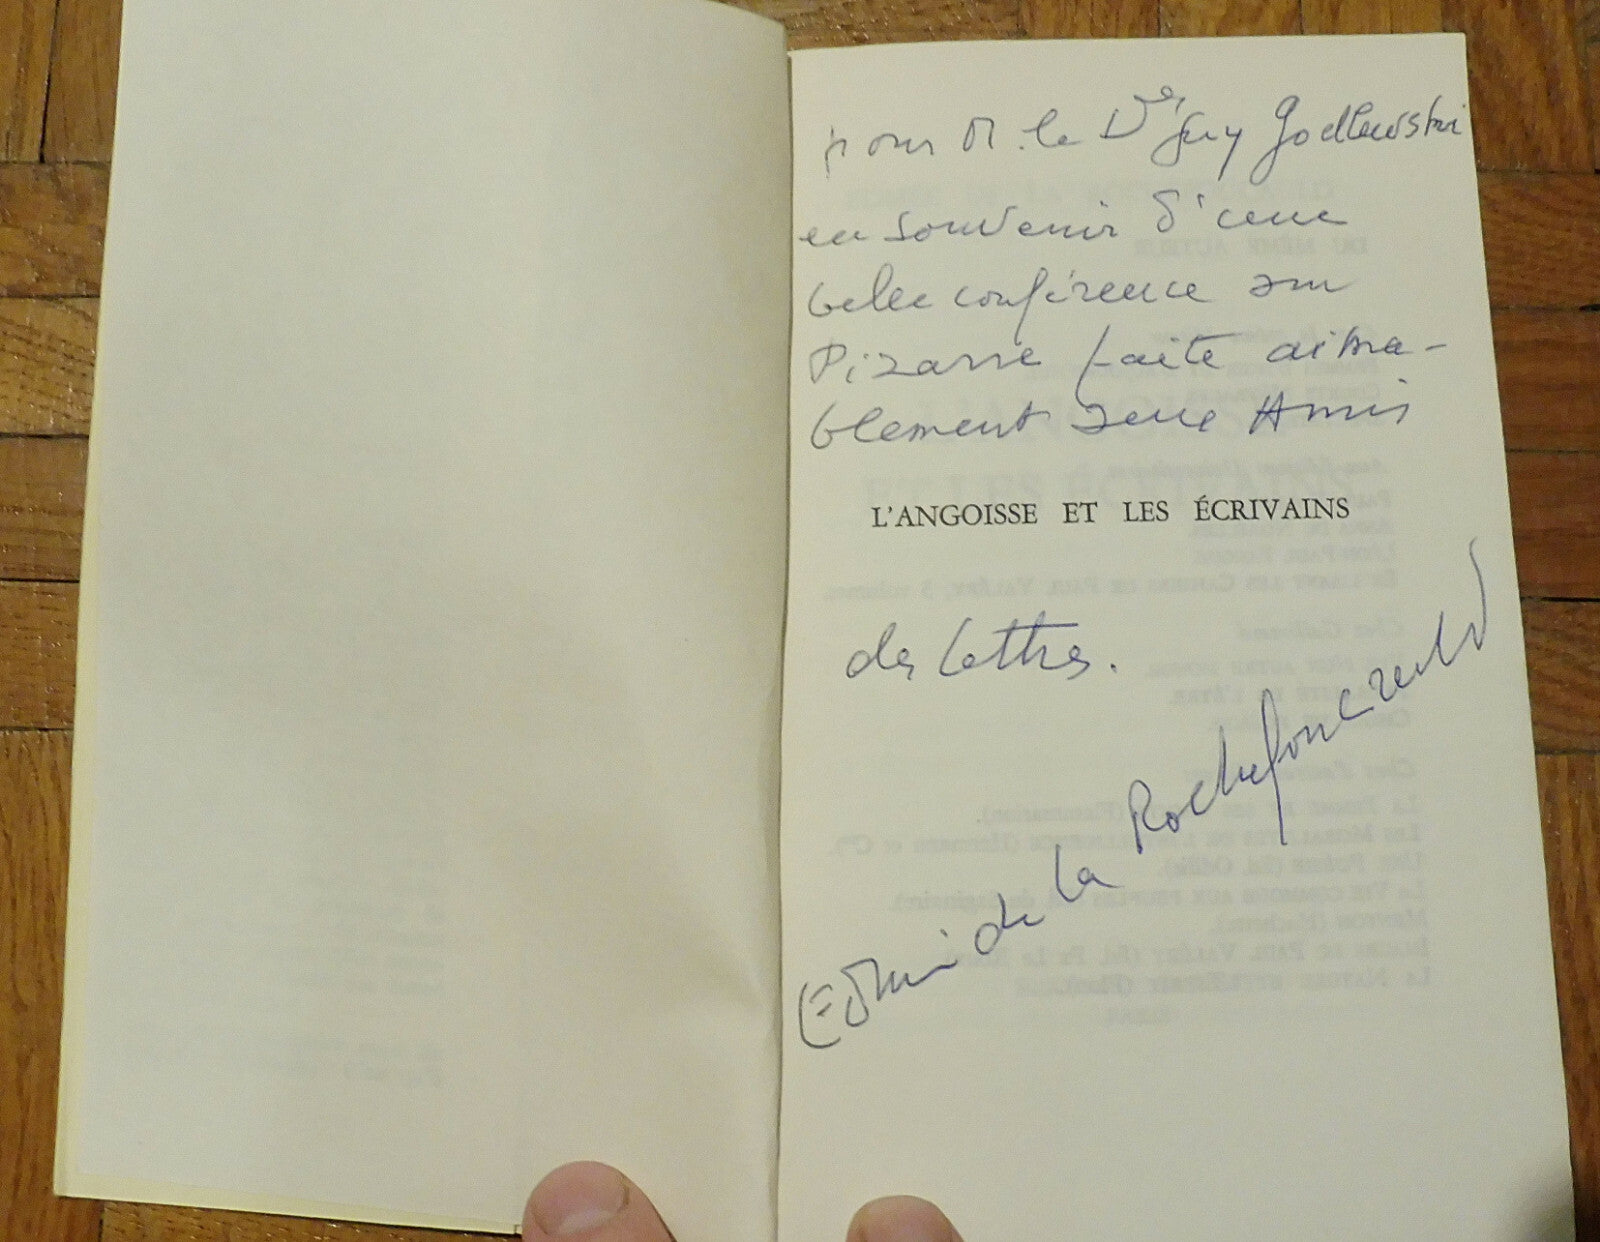 pour M. le Dr Guy Godlewski
en souvenir d'une
belle conférence sur
Pizarre faite aima-
blement aux Amis
L'ANGOISSE ET LES ÉCRIVAINS
des Lettres.
Edmée de la Rochefoucauld